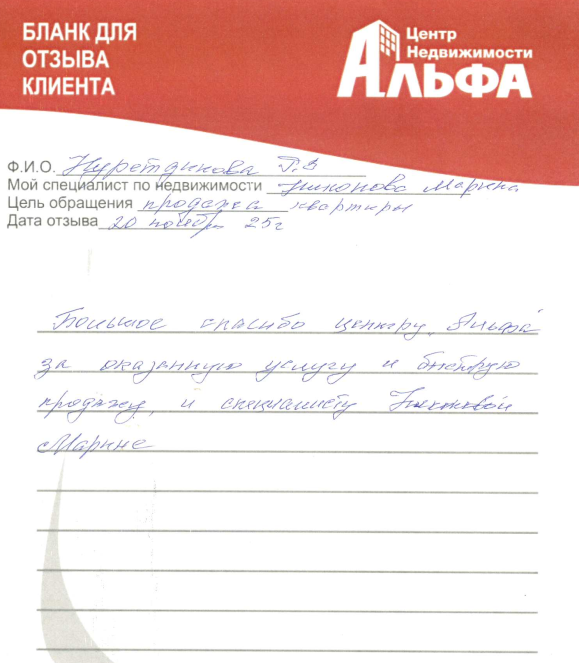 БЛАНК ДЛЯ
ОТЗЫВА
КЛИЕНТА
Центр
Недвижимости
АЛЬФА
Ф.И.О. Нуретдинова Г.З
Мой специалист по недвижимости Никонова Марина
Цель обращения продажа квартиры
Дата отзыва 20 ноября 25г
Большое спасибо центру "Альфа"
за оказанную услугу и быструю
продажу, и специалисту Никоновой
Марине